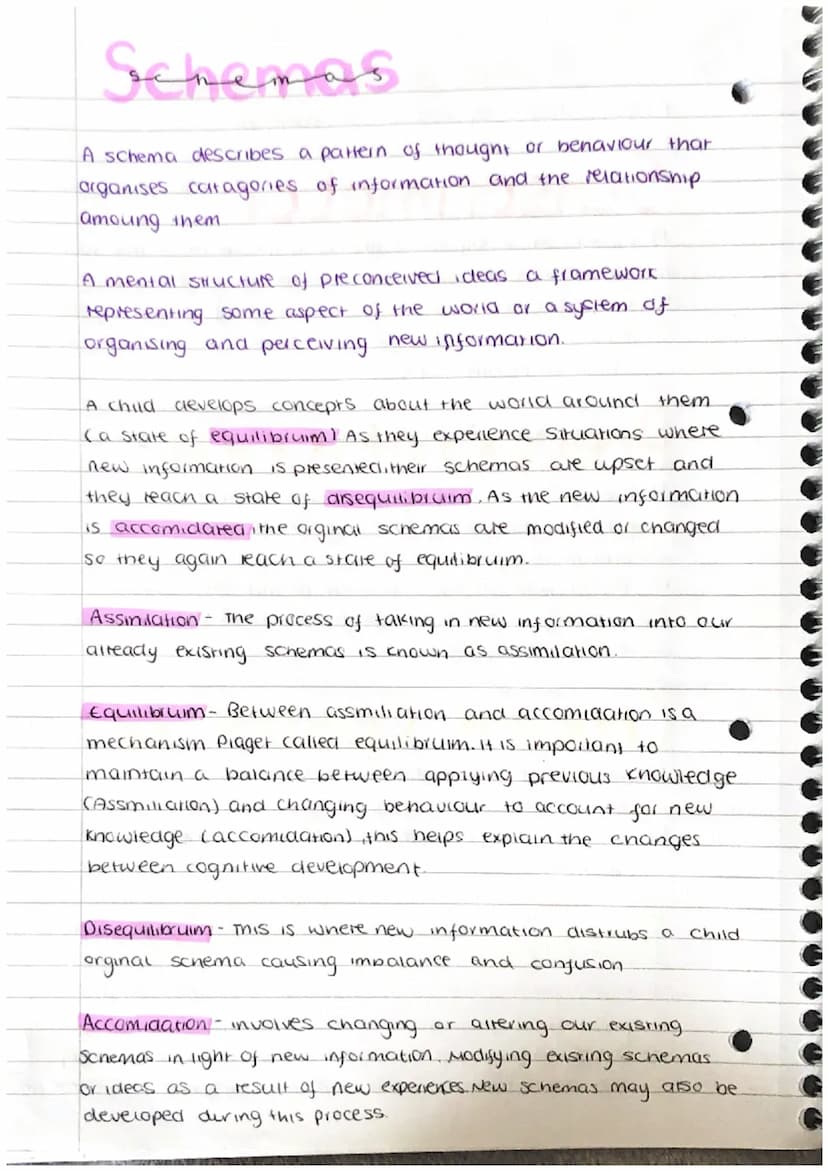 Schemas
schemas
A schema describes a pattern of thought or behaviour that
organises catagories of information and the relationship
amoung them
A mental structure of preconceived ideas a framework
representing some aspect of the world or a system of
organising and perceiving new information.
A child develops concepts about the world around them
(a state of equilibruim) As they experience situations where
new information is presented, their schemas are upset and
they reach a state of disequilibruim. As the new information
is accomidated, the orginal schemas are modified or changed
so they again reach a state of equilibruim.
Assimilation - The process of taking in new information into our
already existing schemas is known as assimilation.
Equilibruim - Between assmiliation and accomidation is a
mechanism Piaget called equilibruim. It is important to
maintain a balance between applying previous knowledge
(Assmiliation) and changing behaviour to account for new
knowledge (accomidation), this helps explain the changes
between cognitive development.
Disequilibruim - This is where new information distrubs a child
orginal schema causing imbalance and confusion
Accomidation - involves changing or altering our existing
schemas in light of new information. Modifying existing schemas
or ideas as a result of new experiences. New schemas may also be
developed during this process.